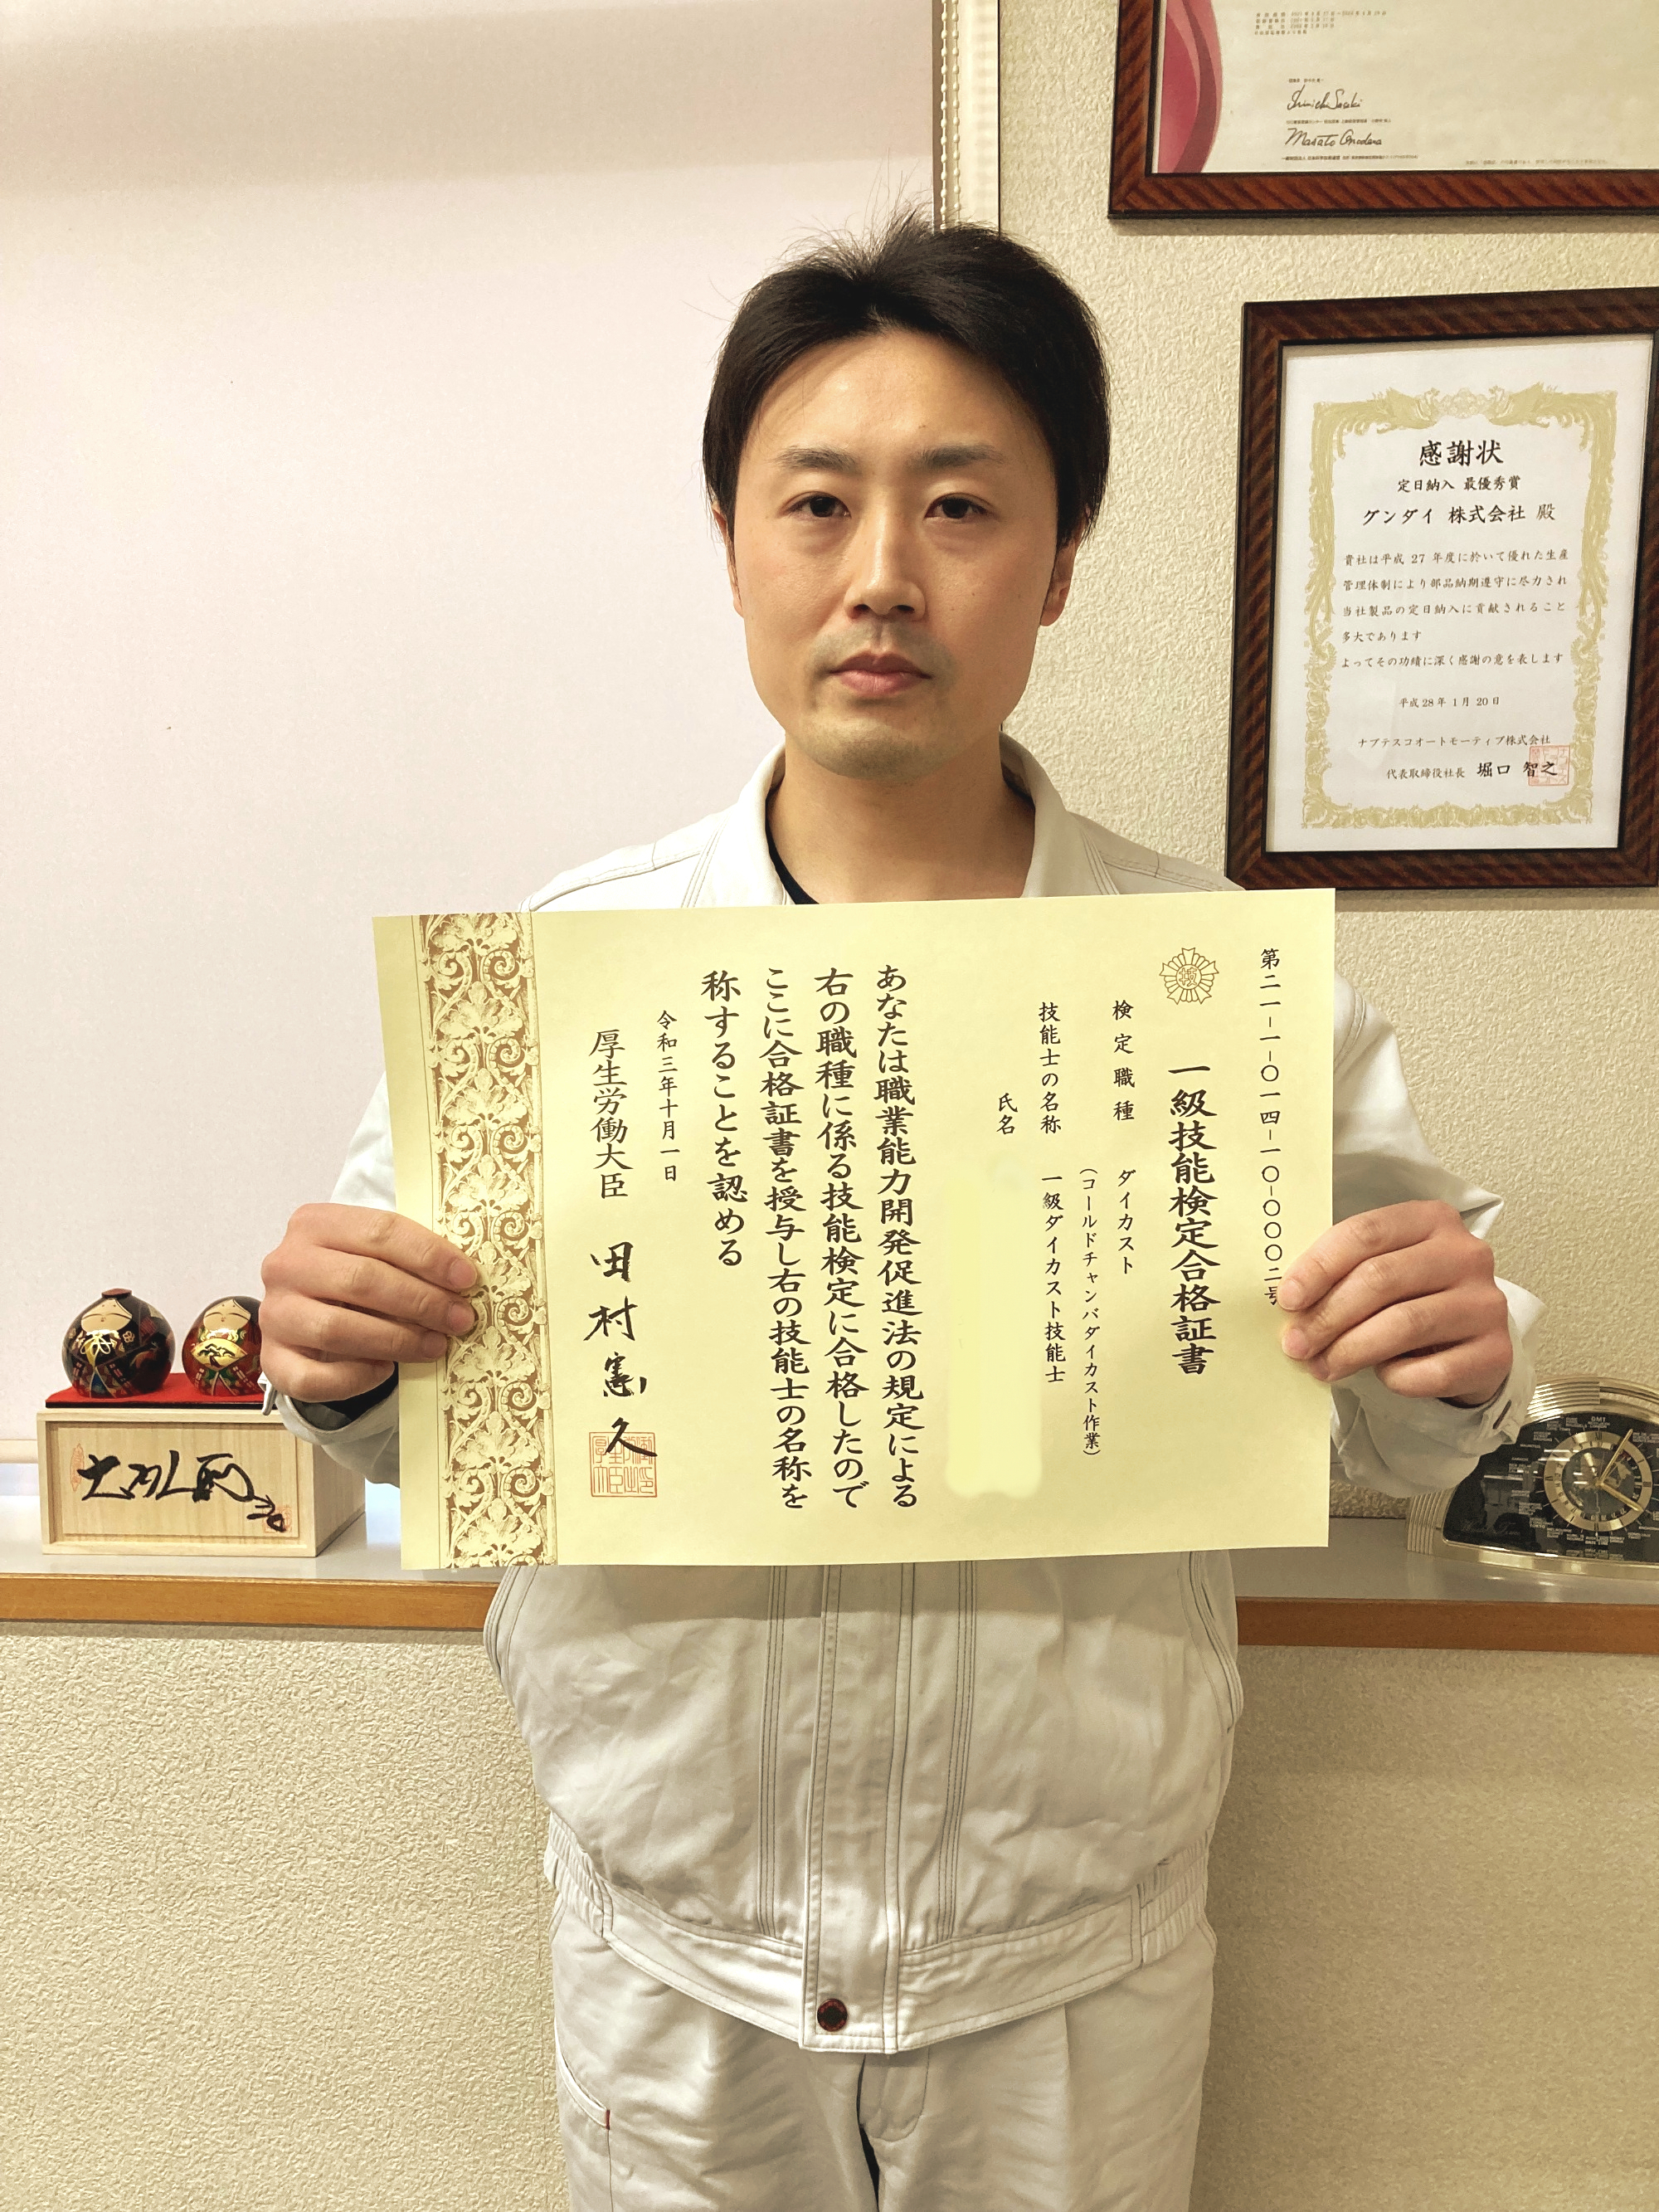 第二一-一-〇一四-一〇-〇〇〇二号
一級技能検定合格証書
検定職種 ダイカスト
(コールドチャンバダイカスト作業)
技能士の名称 一級ダイカスト技能士
氏名
あなたは職業能力開発促進法の規定による
右の職種に係る技能検定に合格したので
ここに合格証書を授与し右の技能士の名称を
称することを認める
令和三年十月一日
厚生労働大臣 田村憲久
感謝状
定日納入 最優秀賞
グンダイ 株式会社 殿
貴社は平成 27 年度に於いて優れた生産
管理体制により部品納期遵守に尽力され
当社製品の定日納入に貢献されること
多大であります
よってその功績に深く感謝の意を表します
平成28年 1月 20日
ナブテスコオートモーティブ株式会社
代表取締役社長 堀口 智之
GMT